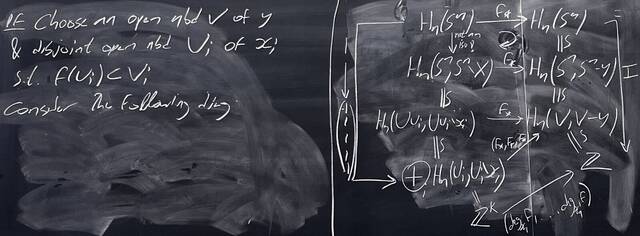 Pf Choose an open nbd V of y
& disjoint open nbd Ui of xi
s.t. f(Ui) ⊂ Vi
Consider the following diag:
Hn(Sⁿ) F* Hn(Sⁿ)
Hn(Sⁿ, Sⁿ\X) F* Hn(Sⁿ, Sⁿ-y)
Hn(∪Ui, ∪Ui\xi) F* Hn(V, V-y)
⊕ Hn(Ui, Ui\xi) Z
Zᵏ